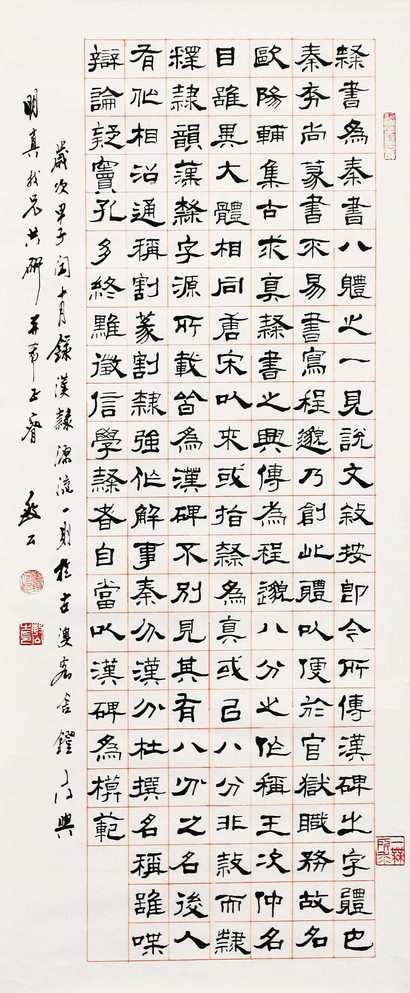 隸書為秦書八體之一見說文敘按即今所傳漢碑之字體也
秦奔尚篆書不易書寫程邈乃創此體以便於官獄職務故名
歐陽輔集古求真隸書之興傳為程邈八分之作稱王次仲名
目雖異大體相同唐宋以來或指隸為真或以八分非敘而隸
釋隸韻漢隸字源所載皆為漢碑不別見其有八分之名後人
有作相沿通稱割篆割隸強作解事秦分漢分杜撰名稱雖喋
辯論疑竇孔多終難徵信學隸者自當以漢碑為模範
歲次甲子閏十月錄漢隸源流一則於古澳客舍鐙
明真我兄共研并希正睿